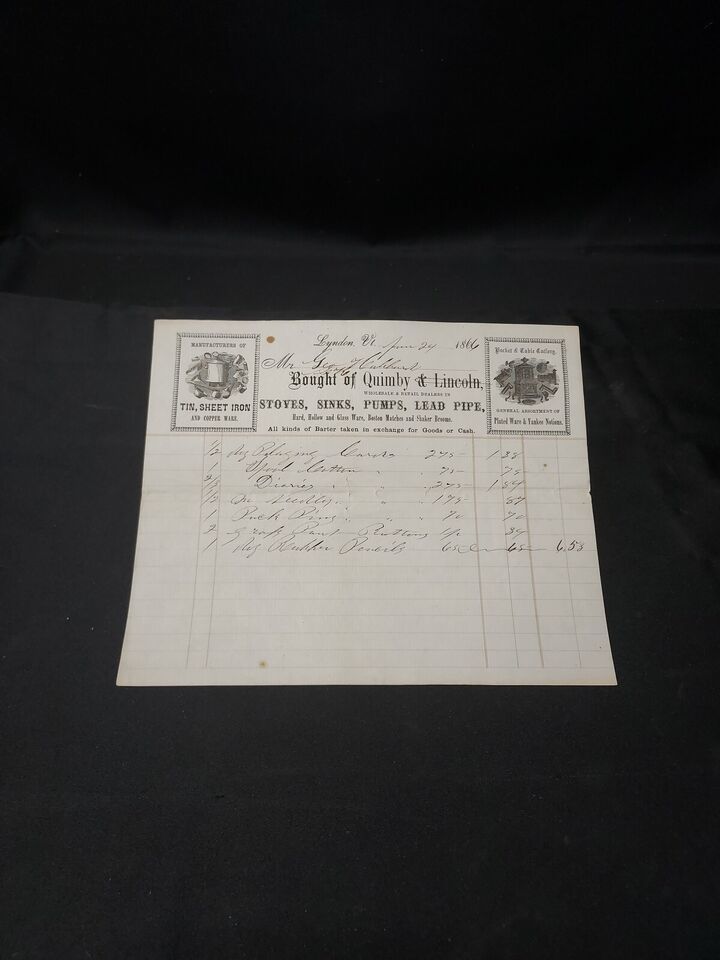 MANUFACTURERS OF
TIN, SHEET IRON
AND COPPER WARE.
Lyndon, Vt. 24 1866
Mr. Geo.
Bought of Quimby & Lincoln,
WHOLESALE & RETAIL DEALERS IN
STOVES, SINKS, PUMPS, LEAD PIPE,
Hard, Hollow and Glass Ware, Boston Matches and Shaker Brooms.
All kinds of Barter taken in exchange for Goods or Cash.
Pocket & Table Cutlery.
GENERAL ASSORTMENT OF
Plated Ware & Yankee Notions.
1/2 Playing Cards 275 1 38
1 Spool Cotton " " 75 75
2/3 Diaries " " 275 1 84
1/2 M Needles " " 175 87
1 Pack Pins " " 70 70
2 Gross Pant Buttons 34
1 Rubber Pencils 65 65 6.53